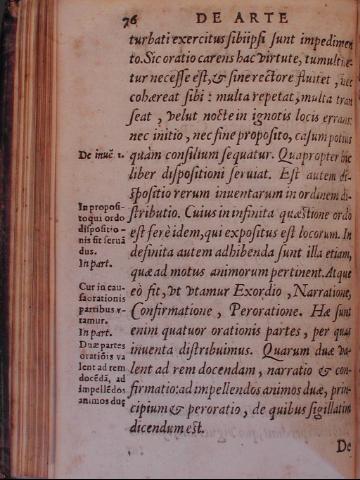 76 DE ARTE
turbati exercitus sibiipsi sunt impedimen
to. Sic oratio carens hac virtute, tumultue-
tur necesse est, & sine rectore fluitet, nec
cohæreat sibi: multa repetat, multa tran
seat, velut nocte in ignotis locis errans:
nec initio, nec fine proposito, casum potius
quàm consilium sequatur. Quapropter hic
liber dispositioni seruiat. Est autem di-
spositio rerum inuentarum in ordinem di-
stributio. Cuius in infinita quæstione ordo
est ferè idem, qui expositus est locorum. In
definita autem adhibenda sunt illa etiam,
quæ ad motus animorum pertinent. Atque
eò fit, vt vtamur Exordio, Narratione,
Confirmatione, Peroratione. Hæ sunt
enim quatuor orationis partes, per quas
inuenta distribuimus. Quarum duæ va-
lent ad rem docendam, narratio & con-
firmatio: ad impellendos animos duæ, prin-
cipium & peroratio, de quibus sigillatim
dicendum est.
De
De inuē 1.
In proposi-
to qui ordo
dispositio-
nis sit seruā
dus.
In part.
Cur in cau-
sa orationis
partibus v-
tamur.
In part.
Duæ partes
orationis va
lent ad rem
docēdā, ad
impellēdos
animos duę